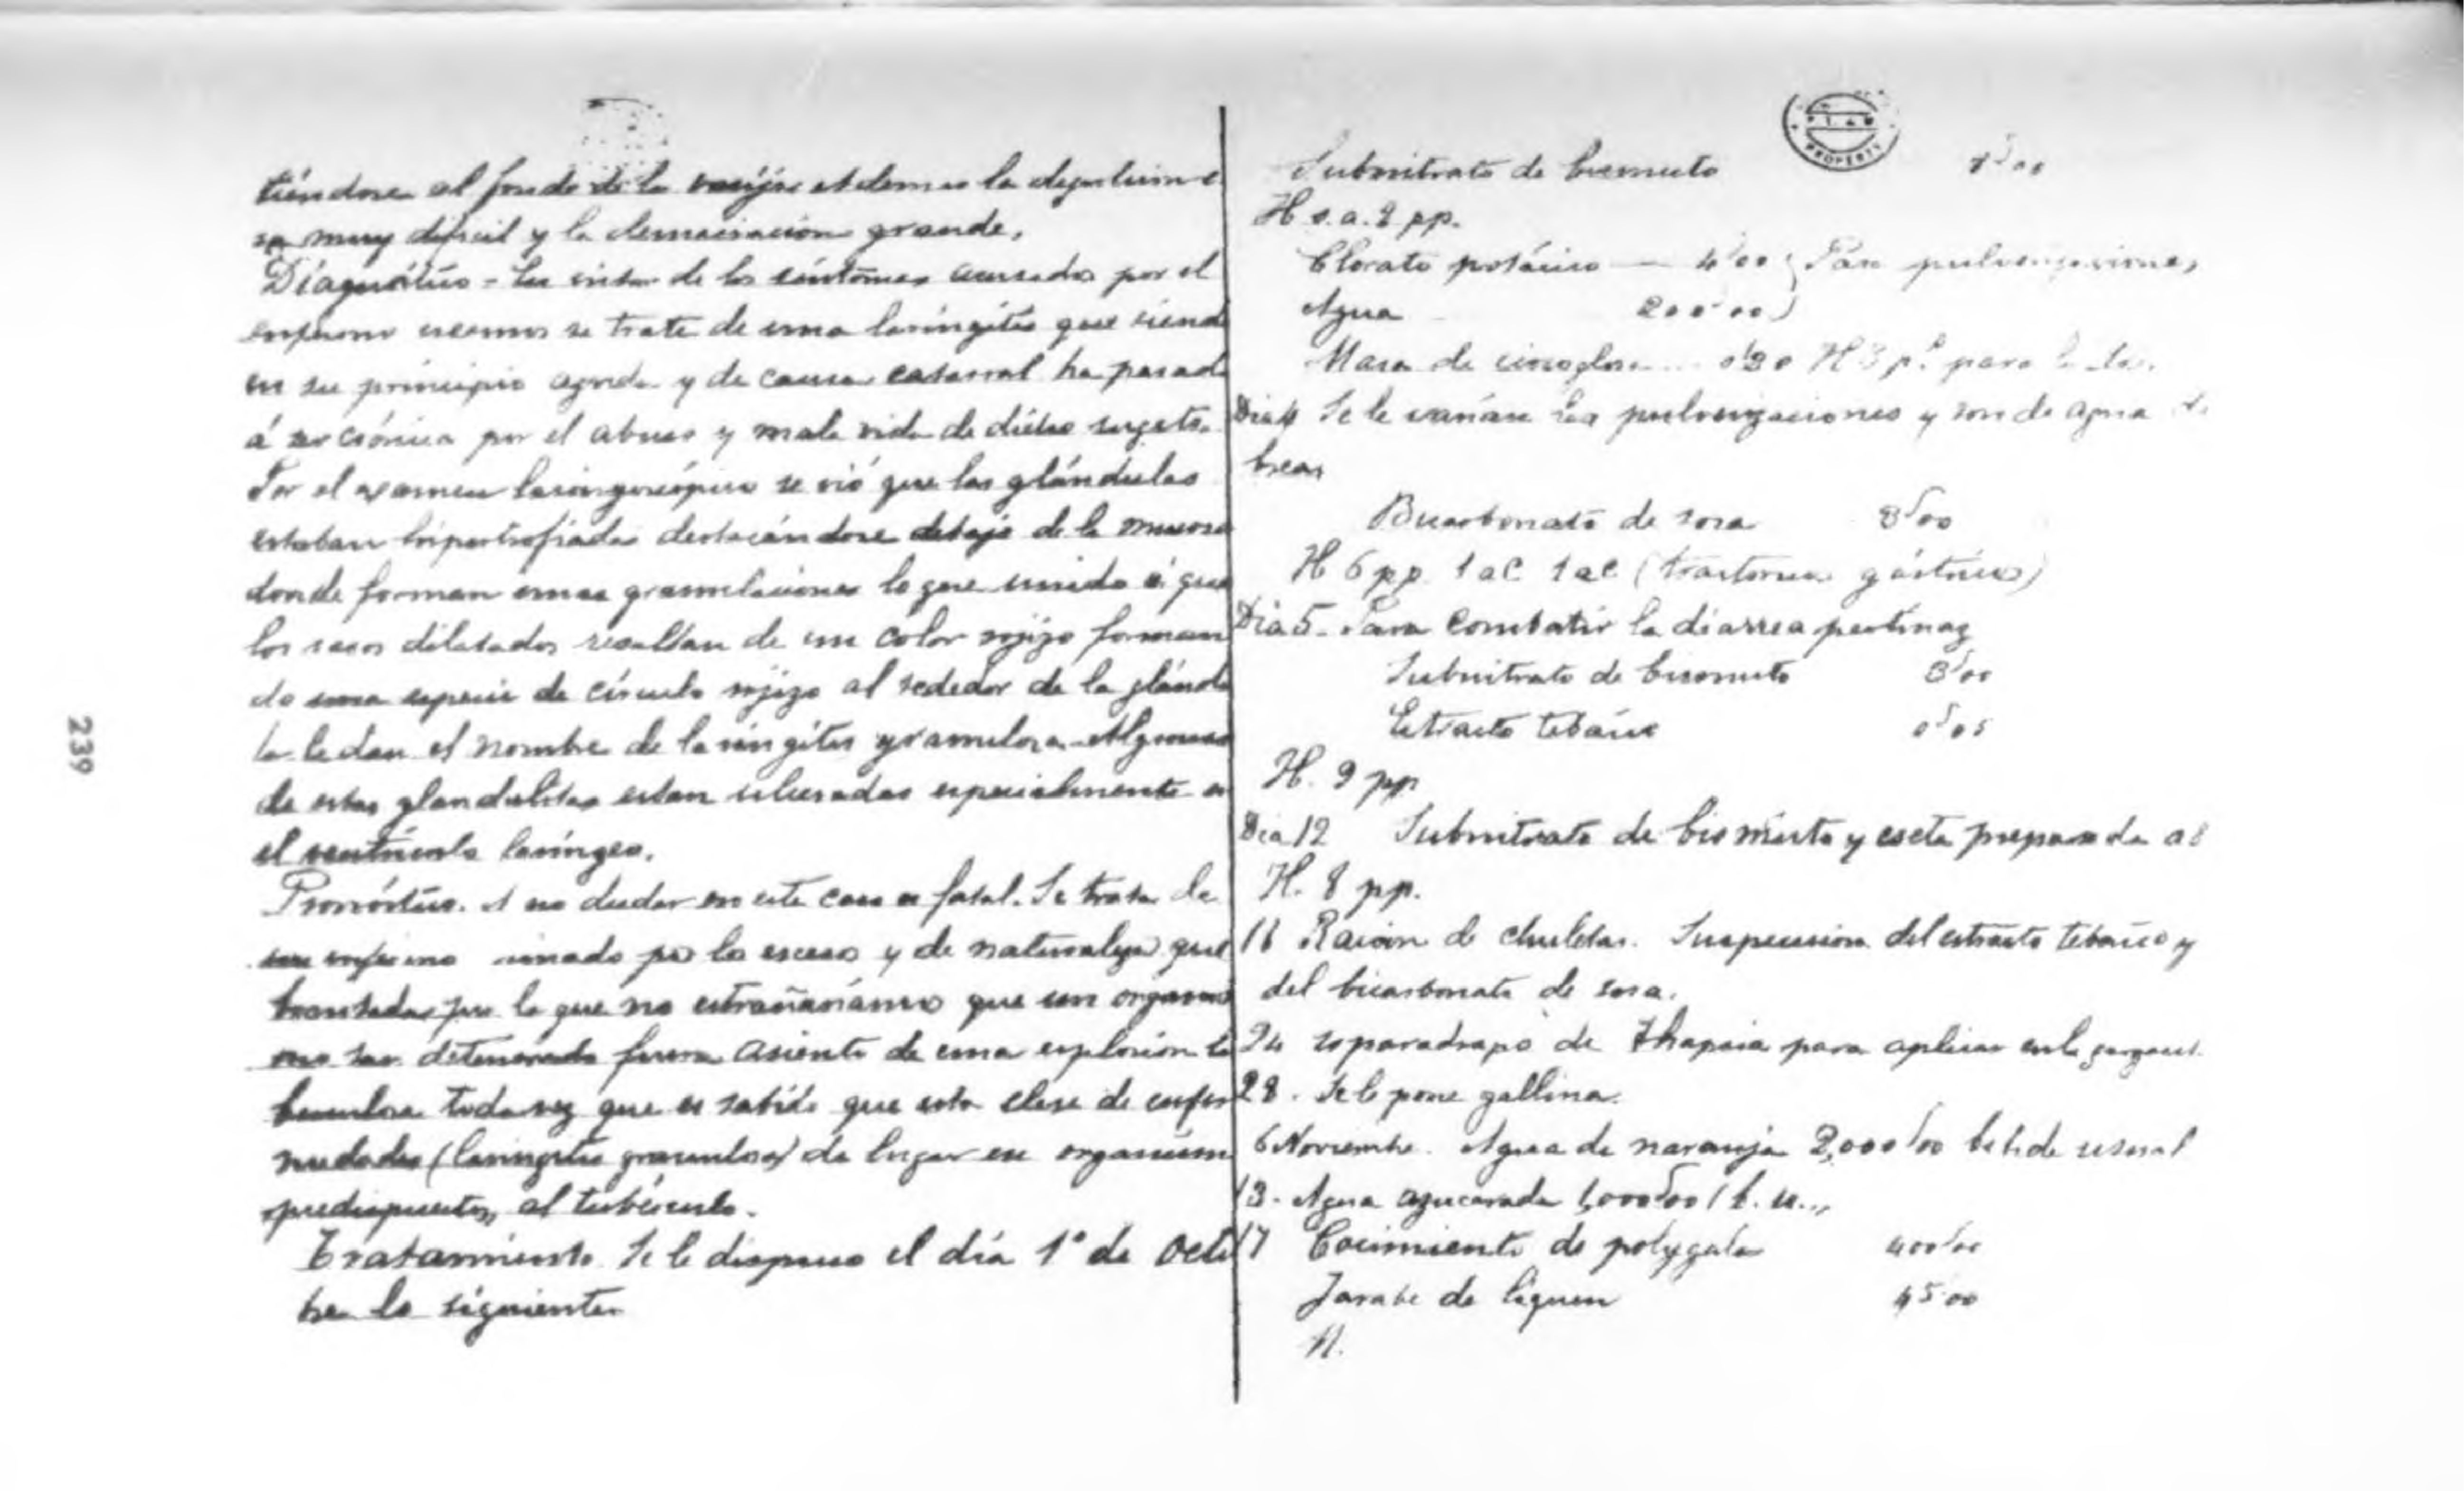 tiéndose al fondo de la vasija. Ademas la deglucion e
ra muy dificil y la demacración grande.
Diagnóstico - En vista de los síntomas acusados por el
enfermo creemos se trate de una laringitis que siendo
en su principio aguda y de causa catarral ha pasado
á ser crónica por el abuso y mala vida de dicho sugeto.
Por el examen laringoscópico se vió que las glándulas
estaban hipertrofiadas destacándose debajo de la mucosa
donde forman unas granulaciones lo que unido á que
los vasos dilatados resaltan de un color rojizo forman
do una especie de círculo rojizo al rededor de la glándu
la le dan el nombre de laringitis granulosa. Algunas
de estas glandulitas estan ulceradas especialmente en
el ventrículo laríngeo.
Pronóstico. A no dudar en este caso es fatal. Se trata de
un enfermo minado por los excesos y de naturaleza que
brantada por lo que no estrañaríamos que un organis
mo tan deteriorado fuera asiento de una esplosión tu
berculosa toda vez que es sabido que esta clase de enfer
medades (laringitis granulosa) da lugar en organism
predispuestos, al tubérculo.
Tratamiento. Se le dispuso el día 1º de Octu
bre lo siguiente
239
PROPERTY
Subnitrato de bismuto
H s.a. 2 pp.
Clorato potásico — 4'00 } Para pulverizaciones
Agua 200'00 }
Masa de cinoglosa 0'20 H 3 p.s para la tos.
Dia 4 Se le varían las pulverizaciones y son de agua de
brea
Bicarbonato de sosa 3'00
H 6 pp. (trastornos gástricos)
Dia 5. Para combatir la diarrea pertinaz
Subnitrato de bismuto 3'00
Estracto tebáico 0'05
H. 9 pp
Dia 12 Subnitrato de bismuto y creta preparada
H. 8 pp.
Racion de chuletas. Suspension del estracto tebaico y
del bicarbonato de sosa.
24 esparadrapo de Thapsia para aplicar en la garganta
28. Se le pone gallina.
6 Noviembre. Agua de naranja 2,000'00 bebida usual
13. Agua azucarada 1,000'00 (b. u.,,
17 Cocimiento de polygala 400'00
Jarabe de liquen 45'00
M.